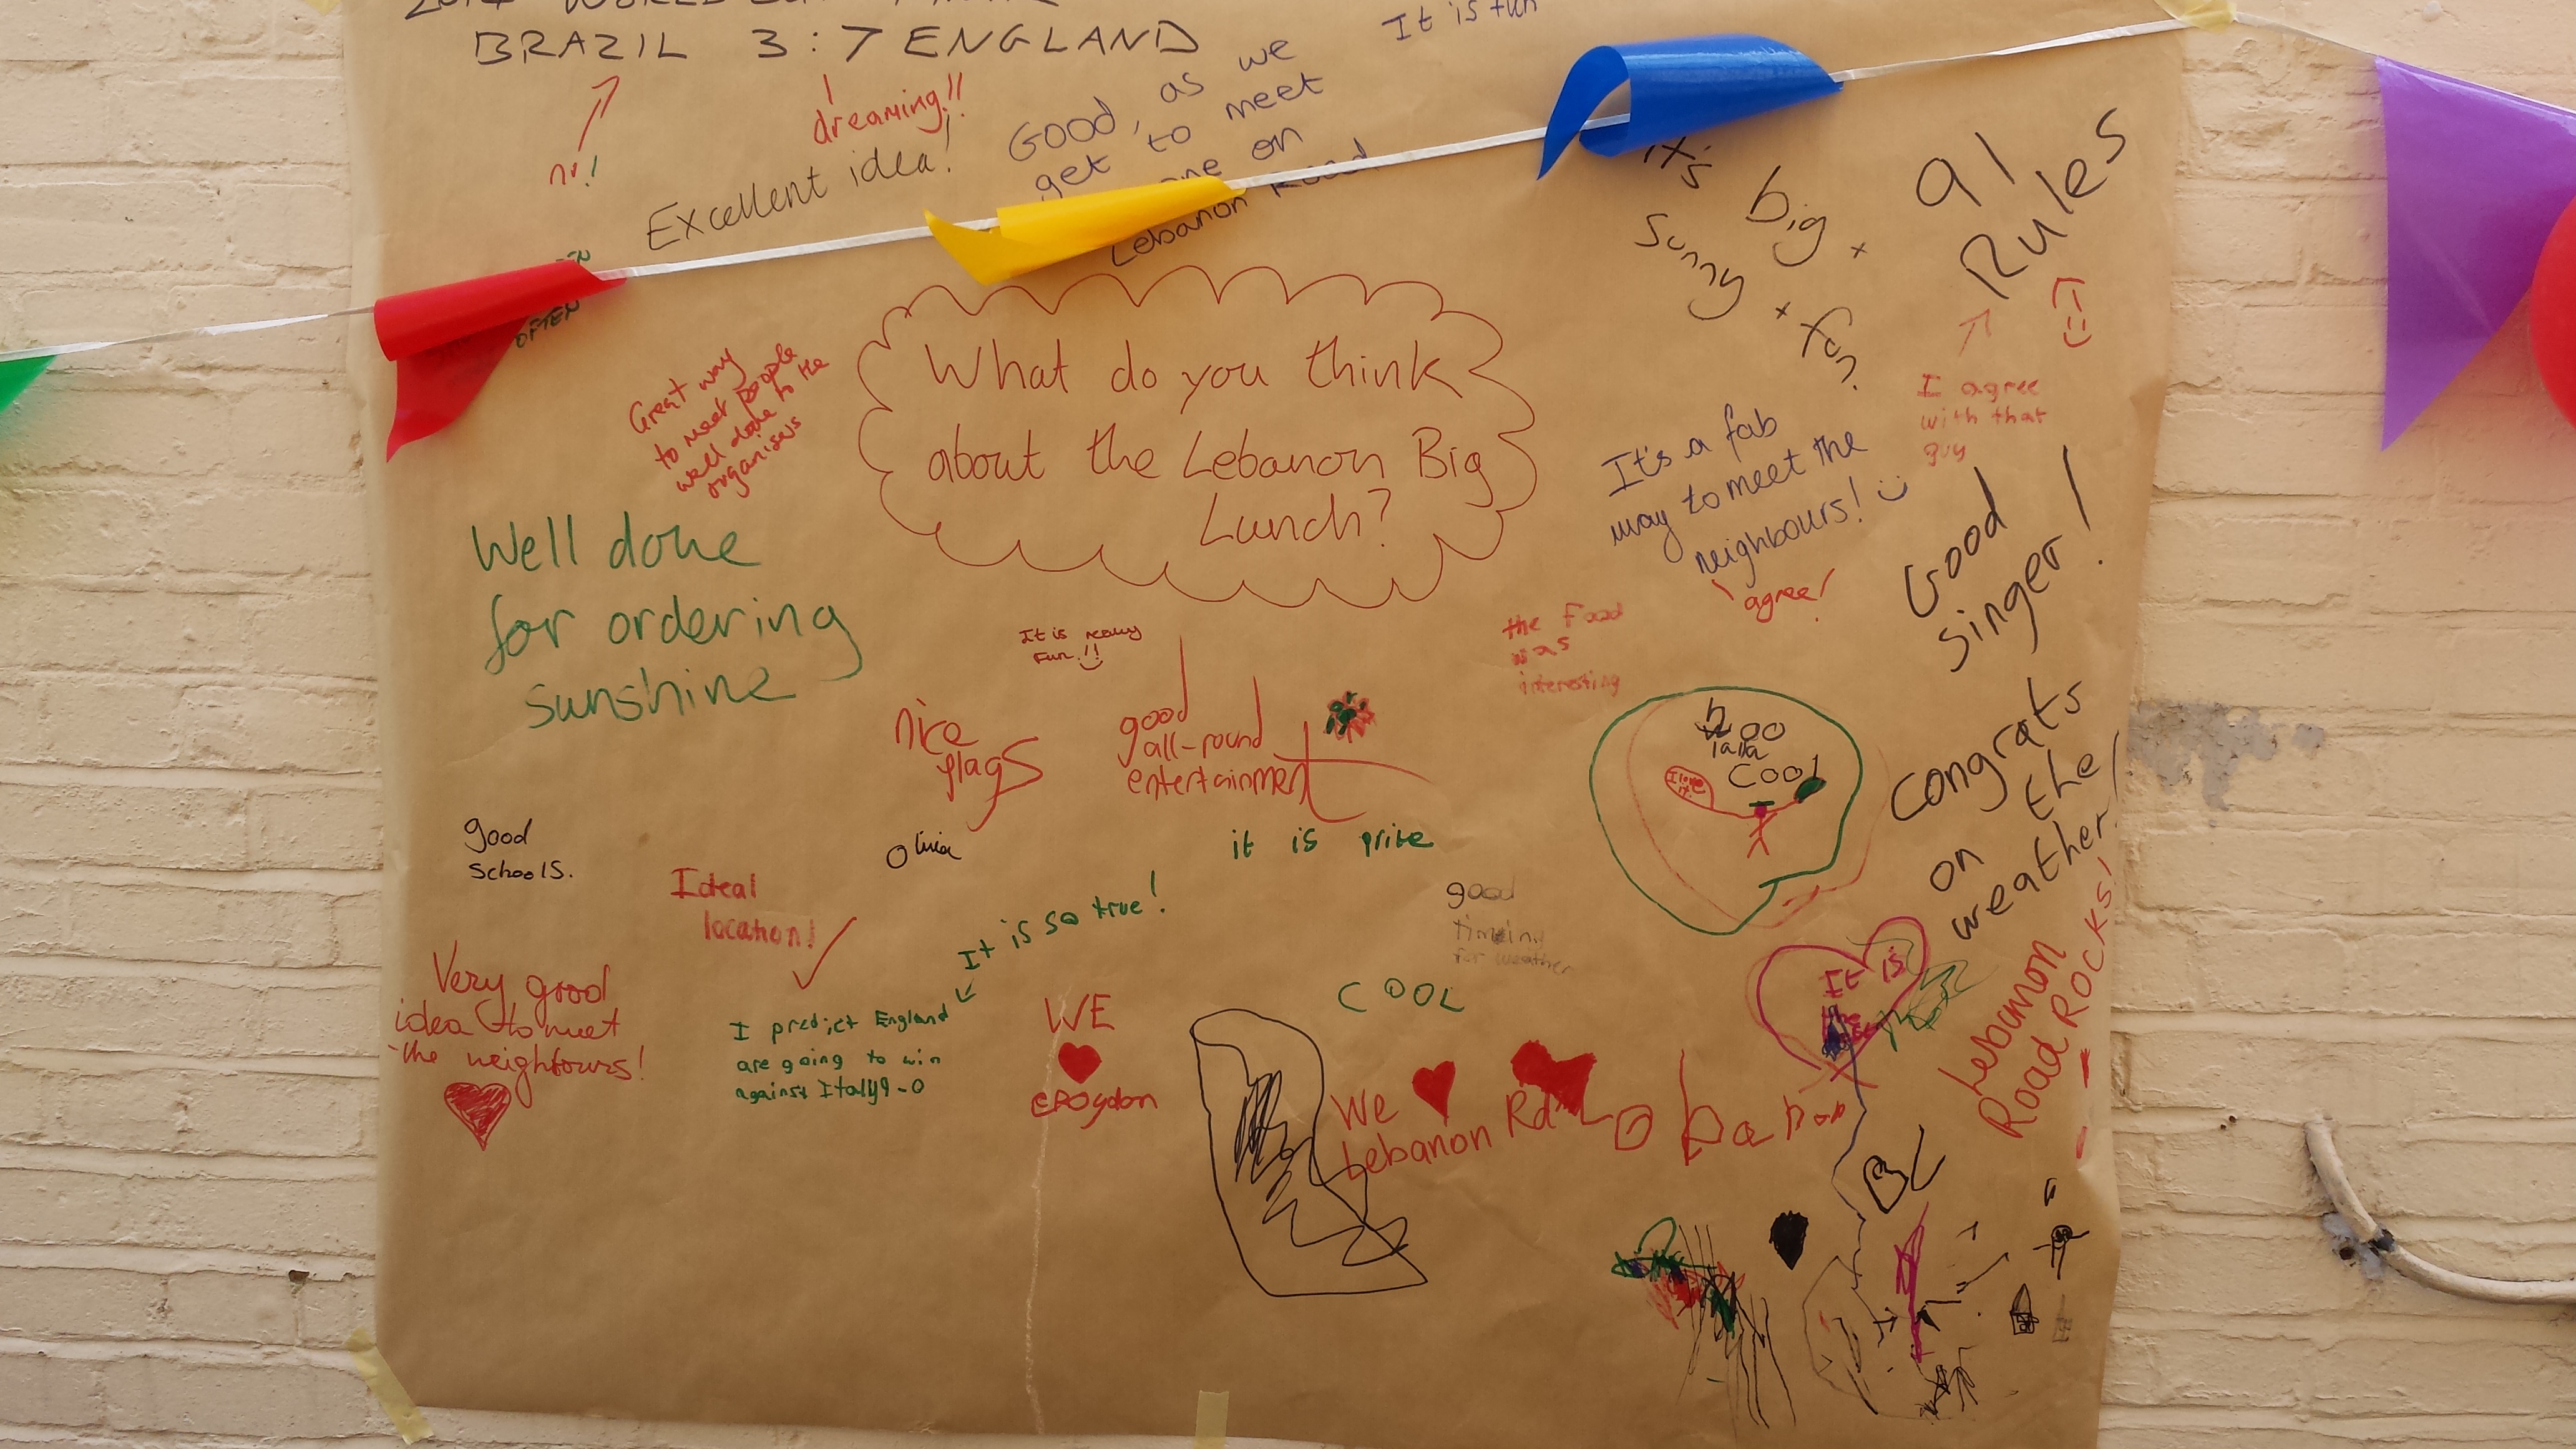 BRAZIL 3:7 ENGLAND
It is fun
dreaming!!
no!
Excellent idea!
Good, as we
get to meet
on
Lebanon Road
it's
big +
sunny
+ fun
91
Rules
I agree
with that
guy
OFTEN
Great way
to meet people
well done to the
organisers
What do you think
about the Lebanon Big
Lunch?
It's a fab
way to meet the
neighbours!
agree!
Good
singer!
Well done
for ordering
sunshine
It is really
fun!!
the food
was
interesting
nice
flags
good
all-round
entertainment
boo
lalla
COOl
I love
it!
Congrats
on the
weather!
good
schools.
Olivia
it is prite
Ideal
location!
It is so true!
good
timing
for weather
Very good
idea to meet
the neighbours!
I predict England
are going to win
against Italy 9-0
WE
CROydon
COOL
We
Lebanon Rd
It is
the
Lebanon
Road ROCKS!